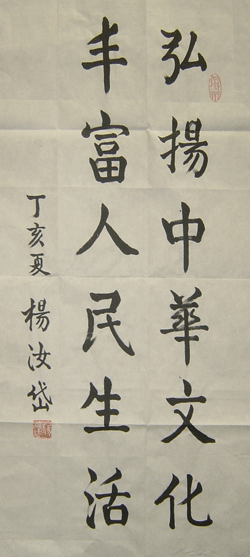 弘揚中華文化
丰富人民生活
丁亥夏 楊汝岱